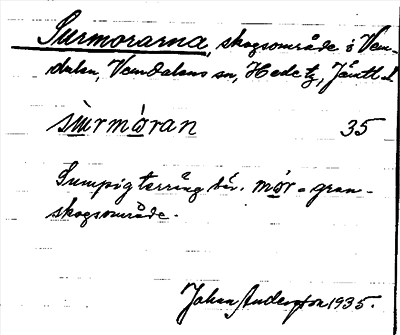 Surmorarna, skogsområde i Vem-
dalen, Vemdalens sn, Hede tg, Jämtl. l.
sùrmóran 35
Sumpig terräng där. mór = gran-
skogsområde.
Johan Anderson 1935.